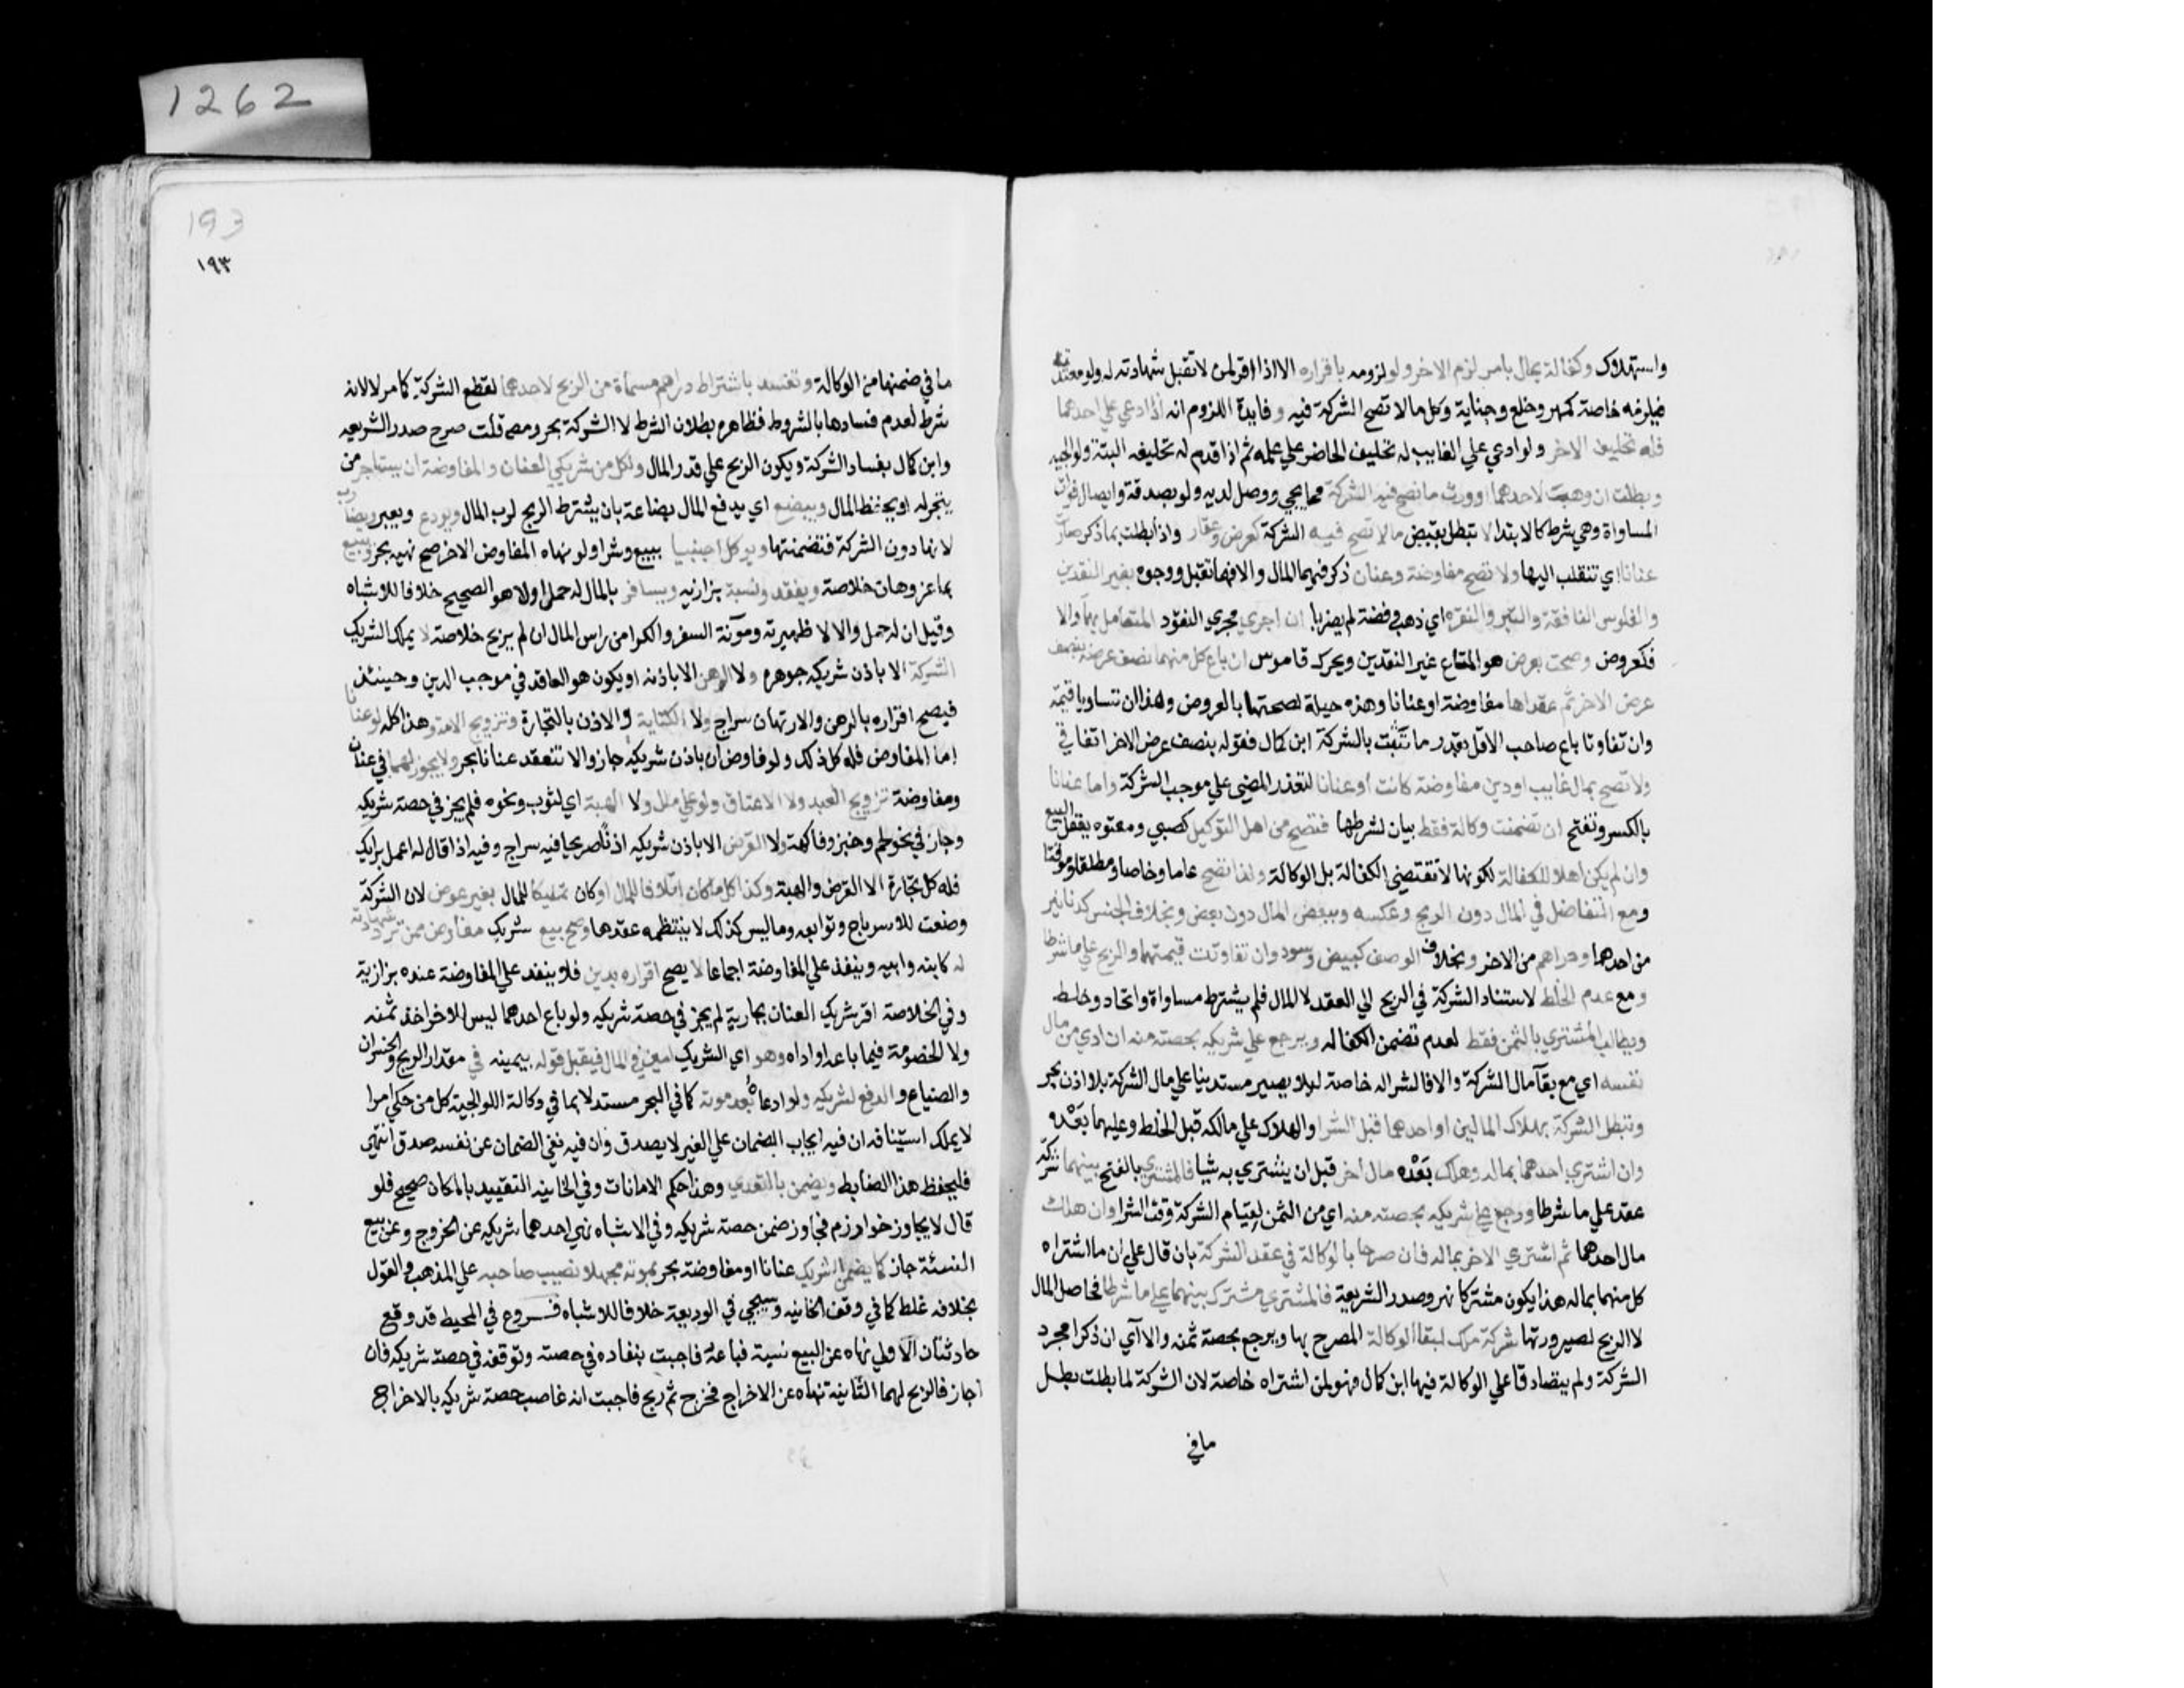 1262
واستهلاك وكفالة بمال بامر لزم الاخر ولو لزومه باقراره الا اذا اقر لمن لا تقبل شهادته له ولو معتدته
فيلزمه خاصة كمهر وخلع وجناية وكل ما لا تصح الشركة فيه وفايدة اللزوم انه اذا ادعي علي احدهما
فله تحليف الاخر ولو ادعي علي الغايب له تحليف الحاضر علي علمه ثم اذا قدم له تحليفه البتة ولوالجيه
وبطلت ان وهب لاحدهما او ورث ما تصح فيه الشركة مما يجي ووصل ليديه ولو بصدقة وايصال فوات
المساواة وهي شرط كالابتدا لا تبطل بقبض ما لا تصح فيه الشركة كعرض وعقار واذا بطلت بما ذكر صارت
عنانا اي تنقلب اليها ولا تصح مفاوضة وعنان ذكر فيهما المال والا فهما تقبل ووجوه بغير النقدين
والفلوس النافقة والتبر والنقرة اي ذهب وفضة لم يضربا ان اجري مجري النقود المتعامل بها والا
فكعروض وصحت بعرض هو المتاع غير النقدين ويحرك قاموس ان باع كل منهما نصف عرضه بنصف
عرض الاخر ثم عقداها مفاوضة او عنانا وهذه حيلة لصحتها بالعروض وهذا ان تساويا قيمة
وان تفاوتا باع صاحب الاقل بقدر ما تثبت بالشركة ابن كمال فقوله بنصف عرض الاخر اتفاقي
ولا تصح بمال غايب او دين مفاوضة كانت او عنانا لتعذر المضي علي موجب الشركة واما عنانا
بالكسر وتفتح ان تضمنت وكالة فقط بيان لشرطها فتصح من اهل التوكيل كصبي ومعتوه يعقل البيع
وان لم يكن اهلا للكفالة لكونها لا تقتضي الكفالة بل الوكالة ولذا تصح عاما وخاصا ومطلقا وموقتا
ومع التفاضل في المال دون الربح وعكسه وببعض المال دون بعض وبخلاف الجنس كدنانير
من احدهما ودراهم من الاخر وبخلاف الوصف كبيض وسود وان تفاوتت قيمتهما والربح علي ما شرطا
ومع عدم الخلط لاستناد الشركة في الربح الي العقد لا المال فلم يشترط مساواة واتحاد وخلط
ويطالب المشتري بالثمن فقط لعدم تضمن الكفاله ويرجع علي شريكه بحصته منه ان ادي من مال
نفسه اي مع بقآ مال الشركة والا فالشرا له خاصة ليلا يصير مستدينا علي مال الشركة بلا اذن بحر
وتبطل الشركة بهلاك المالين او احدهما قبل الشرا والهلاك علي مالكه قبل الخلط وعليهما بعده
وان اشتري احدهما بماله وهلك بعده مال اخر قبل ان يشتري به شيا فالمشتري بالفتح بينهما شركة
عقد علي ما شرطا ورجع علي شريكه بحصته منه اي من الثمن لقيام الشركة وقت الشرا وان هلك
مال احدهما ثم اشتري الاخر بماله فان صرحا بالوكالة في عقد الشركة بان قال علي ان ما اشتراه
كل منهما بماله هذا يكون مشتركا نهر وصدر الشريعة فالمشتري مشترك بينهما علي ما شرطا في اصل المال
لا الربح لصيرورتها شركة ملك لبقا الوكالة المصرح بها ويرجع بحصة ثمنه والا اي ان ذكرا مجرد
الشركة ولم يتصادقا علي الوكالة فيها ابن كمال فهو لمن اشتراه خاصة لان الشركة لما بطلت بطل
ما في
193
١٩٣
ما في ضمنها من الوكالة وتفسد باشتراط دراهم مسماة من الربح لاحدهما لقطع الشركة كما مر لا لانه
شرط لعدم فسادها بالشروط فظاهره بطلان الشرط لا الشركة بحر ومصه قلت صرح صدر الشريعه
وابن كمال بفساد الشركة ويكون الربح علي قدر المال ولكل من شريكي العنان والمفاوضة ان يستاجر من
يتجر له او يحفظ المال ويبضع اي يدفع المال بضاعة بان يشترط الربح لرب المال ويودع ويعير ويضارب
لانها دون الشركة فتضمنتها ويوكل اجنبيا ببيع وشرا ولو نهاه المفاوض الاخر صح نهيه بحر ويبيع
بما عز وهان خلاصة وبنقد ونسية بزازيه ويسافر بالمال له حمل اولا هو الصحيح خلافا للاشباه
وقيل ان له حمل والا لا ظهيرية ومونة السفر والكرا من راس المال ان لم يربح خلاصة لا يملك الشريك
الشركة الا باذن شريكه جوهره ولا الرهن الا باذنه او يكون هو العاقد في موجب الدين وحينئذ
فيصح اقراره بالرهن والارتهان سراج ولا الكتابة والاذن بالتجارة وتزويج الامة وهذا كله لو عنانا
اما المفاوض فله كل ذلك ولو فاوض ان باذن شريكه جاز والا تنعقد عنانا بحر ولا يجوز لهما في عنان
ومفاوضة تزويج العبد ولا الاعتاق ولو علي مال ولا الهبة اي لثوب ونحوه فلم يجز في حصة شريكه
وجاز في نحو لحم وخبز وفاكهة ولا القرض الا باذن شريكه اذنا صريحا فيه سراج وفيه اذا قال له اعمل برايك
فله كل تجارة الا القرض والهبة وكذا كل ما كان اتلافا للمال او كان تمليكا للمال بغير عوض لان الشركة
وضعت للاسرباح وتوابعه وما ليس كذلك لا ينتظمه عقدها وصح بيع شريك مفاوض ممن ترد شهادته
له كابنه وابيه وينفذ علي المفاوضة اجماعا لا يصح اقراره بدين فلا ينفذ علي المفاوضة عنده بزازية
وفي الخلاصة اقر شريك العنان بجارية لم يجز في حصة شريكه ولو باع احدهما ليس للاخر اخذ ثمنه
ولا الخصومة فيما باعه او اداه وهو اي الشريك امين في المال فيقبل قوله بيمينه في مقدار الربح والخسران
والضياع والدفع لشريكه ولو ادعاه بعد موته كما في البحر مستدلا بما في وكالة اللوالجية كل من حكي امرا
لا يملك استينافه ان فيه ايجاب الضمان علي الغير لا يصدق وان فيه نفي الضمان عن نفسه صدق انتهي
فليحفظ هذا الضابط ويضمن بالتعدي وهذا حكم الامانات وفي الخانيه التقييد بالمكان صحيح فلو
قال لا يجاوز خوارزم فجاوز ضمن حصة شريكه وفي الاشباه نهي احدهما شريكه عن الخروج وعن بيع
النسئة جاز كما يضمن الشريك عنانا او مفاوضة بحر بموته مجهلا نصيب صاحبه علي المذهب والقول
بخلافه غلط كما في وقف الخانيه وسيجي في الوديعة خلافا للاشباه فـــروع في المحيط قد وقع
حادثتان الاولي نهاه عن البيع نسية فباعه فاجبت بنفاده في حصته وتوقفه في حصة شريكه فان
اجاز فالربح لهما الثانية نهاه عن الاخراج فخرج ثم ربح فاجبت انه غاصب حصة شريكه بالاخراج